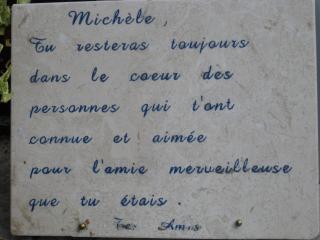 Michèle,
Tu resteras toujours
dans le coeur des
personnes qui t'ont
connue et aimée
pour l'amie merveilleuse
que tu étais.
Tes Amis